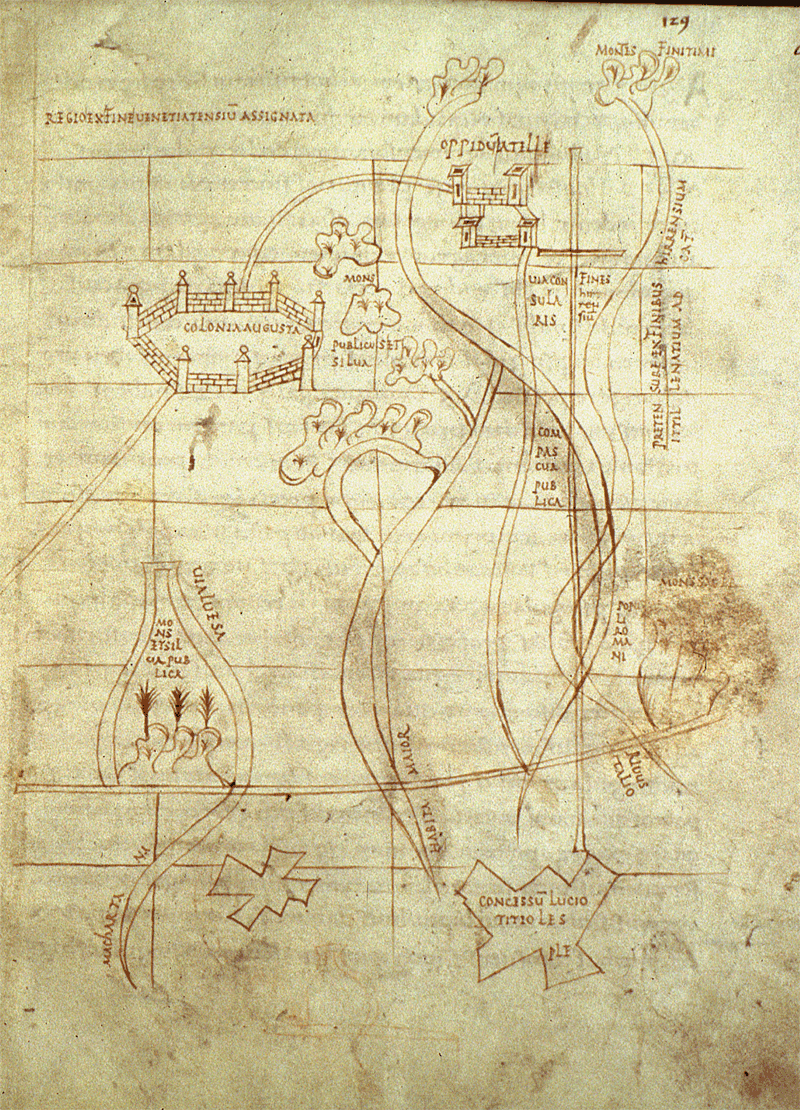 129
MONTES FINITIMI
REGIO EXT FINE VENETIATENSIŪ ASSIGNATA
OPPIDŪ ATELLE
COLONIA AUGUSTA
MONS
PUBLICUS ET
SILUA
UIA CON
SULA
RIS
FINES
PRETEN SURE EX FINIBUS
ITTIL LENATIUM AD
COM
PAS
CUA
PUB
LICA
UIA LUESA
MO
NS
ET SIL
CUA PUB
LICA
MONS
PON
LI
RO
MA
NI
RIUUS
TALIO
HABITA MAIOR
MACHARTA
NA
CONCESSŪ LUCIO
TITIO LES
PLE